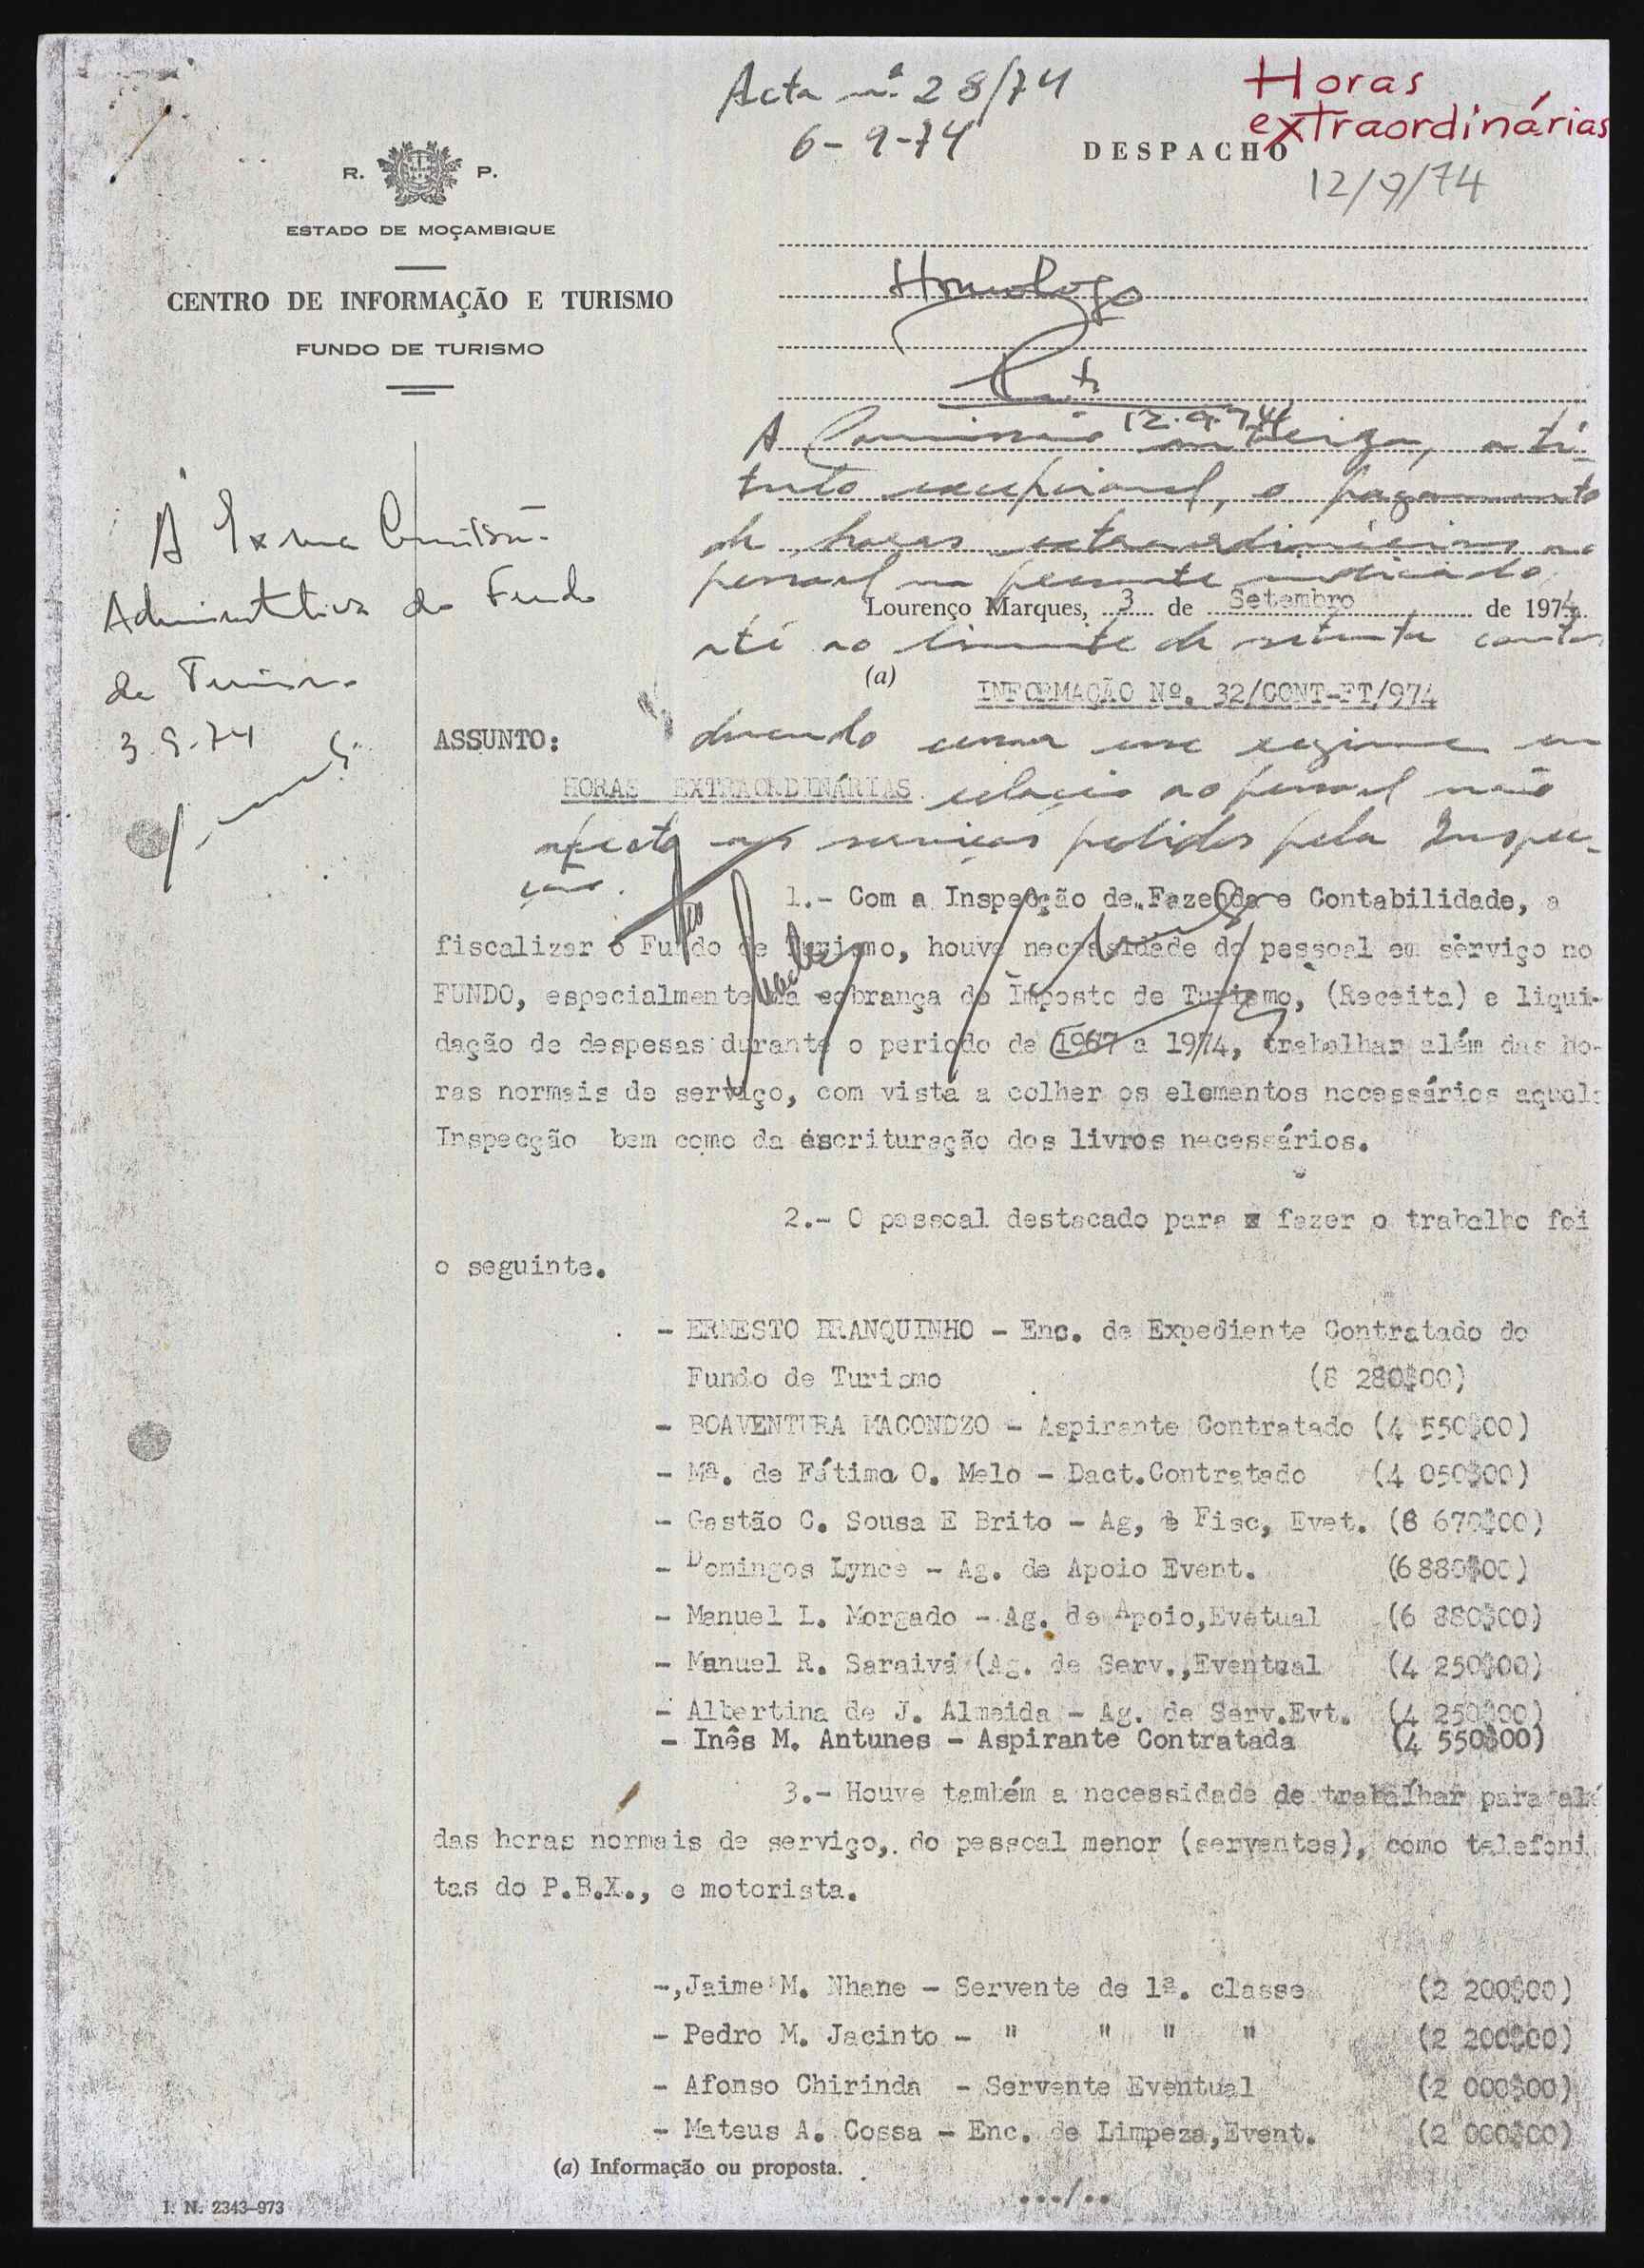 Acta nº 28/74
6-9-74
Horas
extraordinárias
DESPACHO
12/9/74
R. P.
ESTADO DE MOÇAMBIQUE
CENTRO DE INFORMAÇÃO E TURISMO
FUNDO DE TURISMO
Homologo
12.9.74
A Comissão autoriza, a tí-
tulo excepcional, o pagamento
de horas extraordinárias ao
pessoal na presente indicado,
Lourenço Marques, 3 de Setembro de 1974
até ao limite de setenta contos
(a)
INFORMAÇÃO Nº. 32/CONT-FT/974
À Exma Comissão
Administrativa do Fundo
de Turismo
3.9.74
ASSUNTO:
devendo cessar esse regime em
HORAS EXTRAORDINÁRIAS
relação ao pessoal não
afecto aos serviços pedidos pela Inspec-
ção.
1.- Com a Inspecção de Fazenda e Contabilidade, a
fiscalizar o Fundo de Turismo, houve necessidade do pessoal em serviço no
FUNDO, especialmente da cobrança do Imposto de Turismo, (Receita) e liqui-
dação de despesas durante o periodo de 1967 a 1974, trabalhar além das ho-
ras normais de serviço, com vista a colher os elementos necessários aquela
Inspecção bem como da escrituração dos livros necessários.
2.- O pessoal destacado para fazer o trabalho foi
o seguinte.
- ERNESTO BRANQUINHO - Enc. de Expediente Contratado do
Fundo de Turismo (8 280$00)
- BOAVENTURA MACONDZO - Aspirante Contratado (4 550$00)
- Mª. de Fátima O. Melo - Dact.Contratado (4 050$00)
- Gastão C. Sousa E Brito - Ag, Fisc, Evet. (8 670$00)
- Domingos Lynce - Ag. de Apoio Event. (6 880$00)
- Manuel L. Morgado - Ag. de Apoio,Evetual (6 880$00)
- Manuel R. Saraiva (Ag. de Serv.,Eventual (4 250$00)
- Albertina de J. Almeida - Ag. de Serv.Evt. (4 250$00)
- Inês M. Antunes - Aspirante Contratada (4 550$00)
3.- Houve também a necessidade de trabalhar para alé
das horas normais de serviço, do pessoal menor (serventes), como telefoni
tas do P.B.X., e motorista.
-,Jaime M. Nhane - Servente de 1ª. classe (2 200$00)
- Pedro M. Jacinto - " " " " (2 200$00)
- Afonso Chirinda - Servente Eventual (2 000$00)
- Mateus A. Cossa - Enc. de Limpeza,Event. (2 000$00)
(a) Informação ou proposta.
.../..
I. N. 2343-973